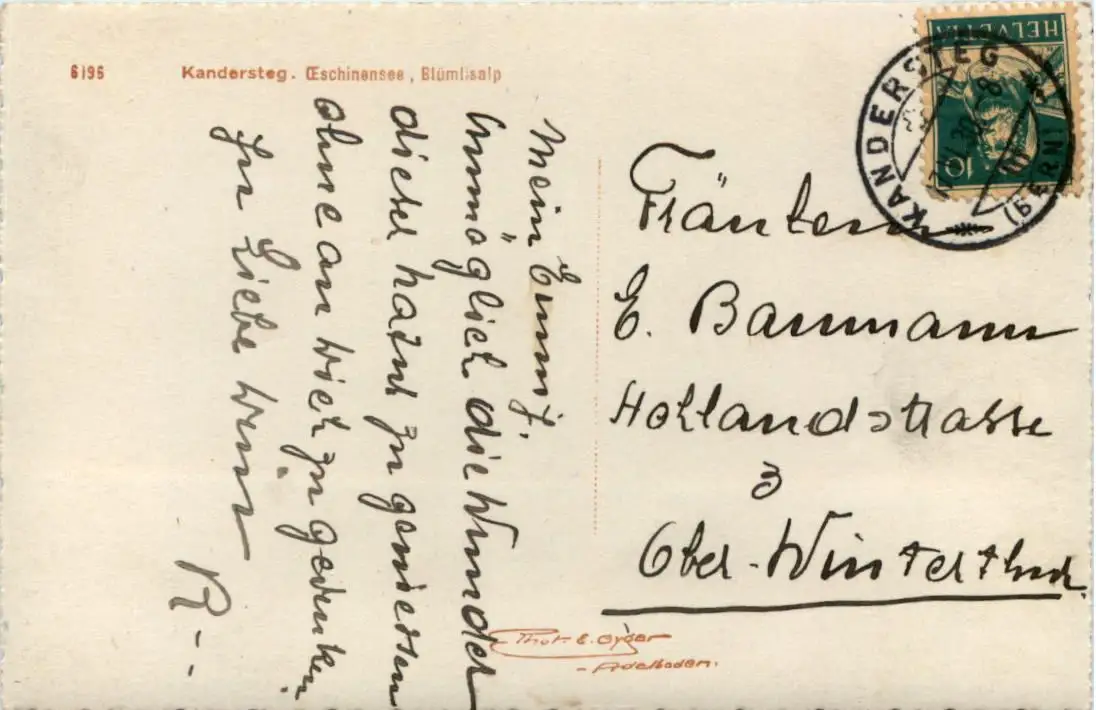 6196
Kandersteg. Œschinensee, Blümlisalp
Mein Emmy,
Unmöglich die Wunder
dieser Natur zu geniessen
ohne an Dich zu gedenken.
In Liebe Dein
R--.
Fräulein
E. Baumann
Hohlandstrasse
3
Ober-Winterthur
HELVETIA
10
KANDERSTEG
(BERN)
Phot. E. Gyger
-Adelboden.